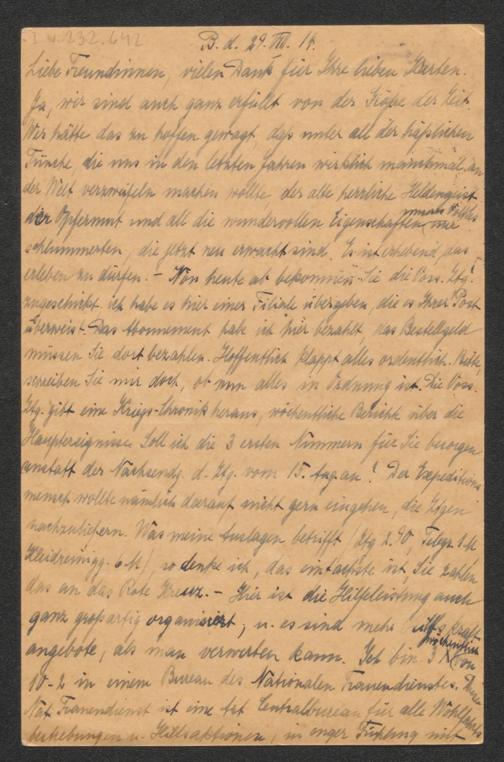 I 4.232.642
B. d. 29. VIII. 14.
Liebe Freundinnen, vielen Dank für Ihre lieben Karten.
Ja, wir sind auch ganz erfüllt von der Größe der Zeit.
Wer hätte das zu hoffen gewagt, daß unter all der häßlichen
Tünche, die uns in den letzten Jahren wirklich manchmal an
der Welt verzweifeln machen wollte, der alte herrliche Heldengeist
der Opfermut und all die wundervollen Eigenschaften unseres Volkes nur
schlummerten, die jetzt neu erwacht sind. Es ist erhebend, das
erleben zu dürfen. – Von heute ab bekommen Sie die Voss. Ztg.
zugeschickt, ich habe es hier einer Filiale übergeben, die es Ihrer Post
überweist. Das Abonnement habe ich hier bezahlt, das Bestellgeld
müssen Sie dort bezahlen. Hoffentlich klappt alles ordentlich. Bitte,
schreiben Sie mir doch, ob nun alles in Ordnung ist. Die Voss.
Ztg. gibt eine Kriegs-Chronik heraus, wöchentliche Berichte über die
Hauptereignisse. Soll ich die 3 ersten Nummern für Sie besorgen
anstatt der Nachsendg. d. Ztg. vom 15. Aug. an? Der Expeditions-
mensch wollte nämlich darauf nicht gern eingehen, die Ztgen
nachzuliefern. Was meine Auslagen betrifft, Ztg 2.90, Telegr. 1 M,
Kleidreinigg. 6 M), so denke ich, das einfachste ist, Sie zahlen
das an das Rote Kreuz. – Hier ist die Hilfeleistung auch
ganz großartig organisiert, u. es sind mehr Hilfskraft-
angebote, als man verwerten kann. Ich bin 3 x wöchentlich von
10-2 in einem Bureau des Nationalen Frauendienstes.
Nat. Frauendienst ist eine Art Centralbureau für alle Wohlfahrts-
bestrebungen u. Hilfsaktionen, in enger Fühlung mit